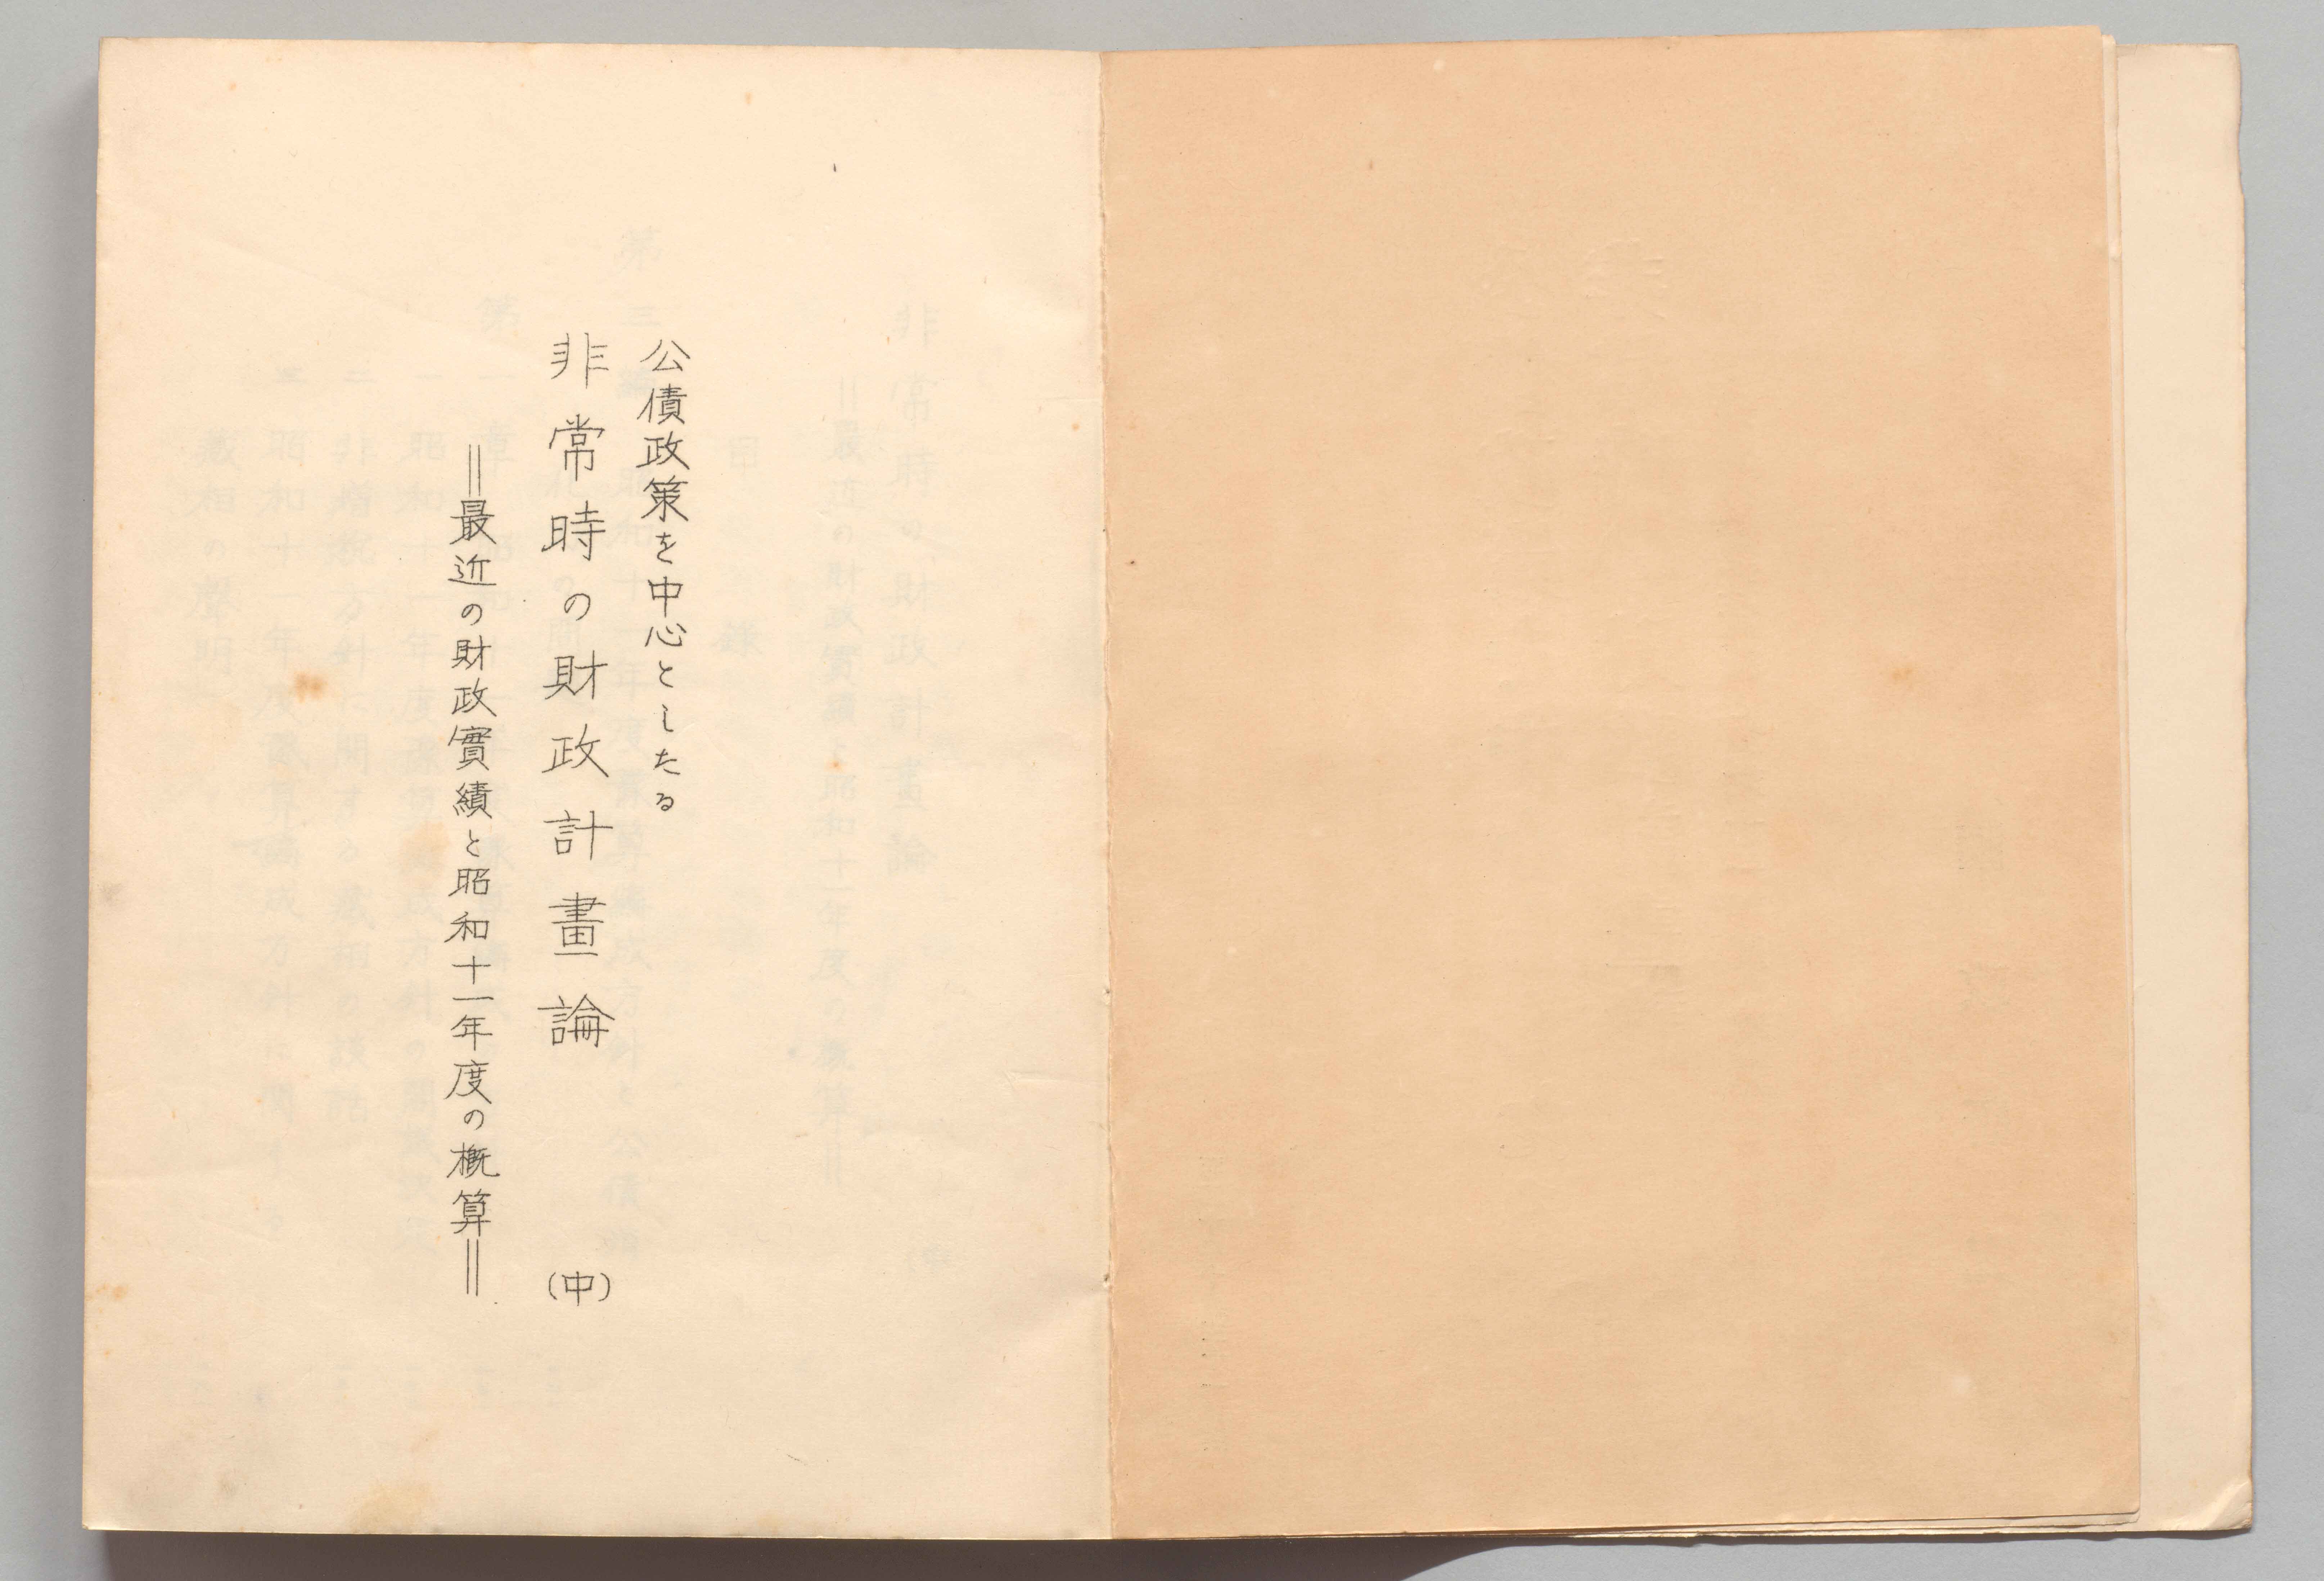 公債政策を中心としたる
非常時の財政計畫論 (中)
＝最近の財政實績と昭和十一年度の概算＝